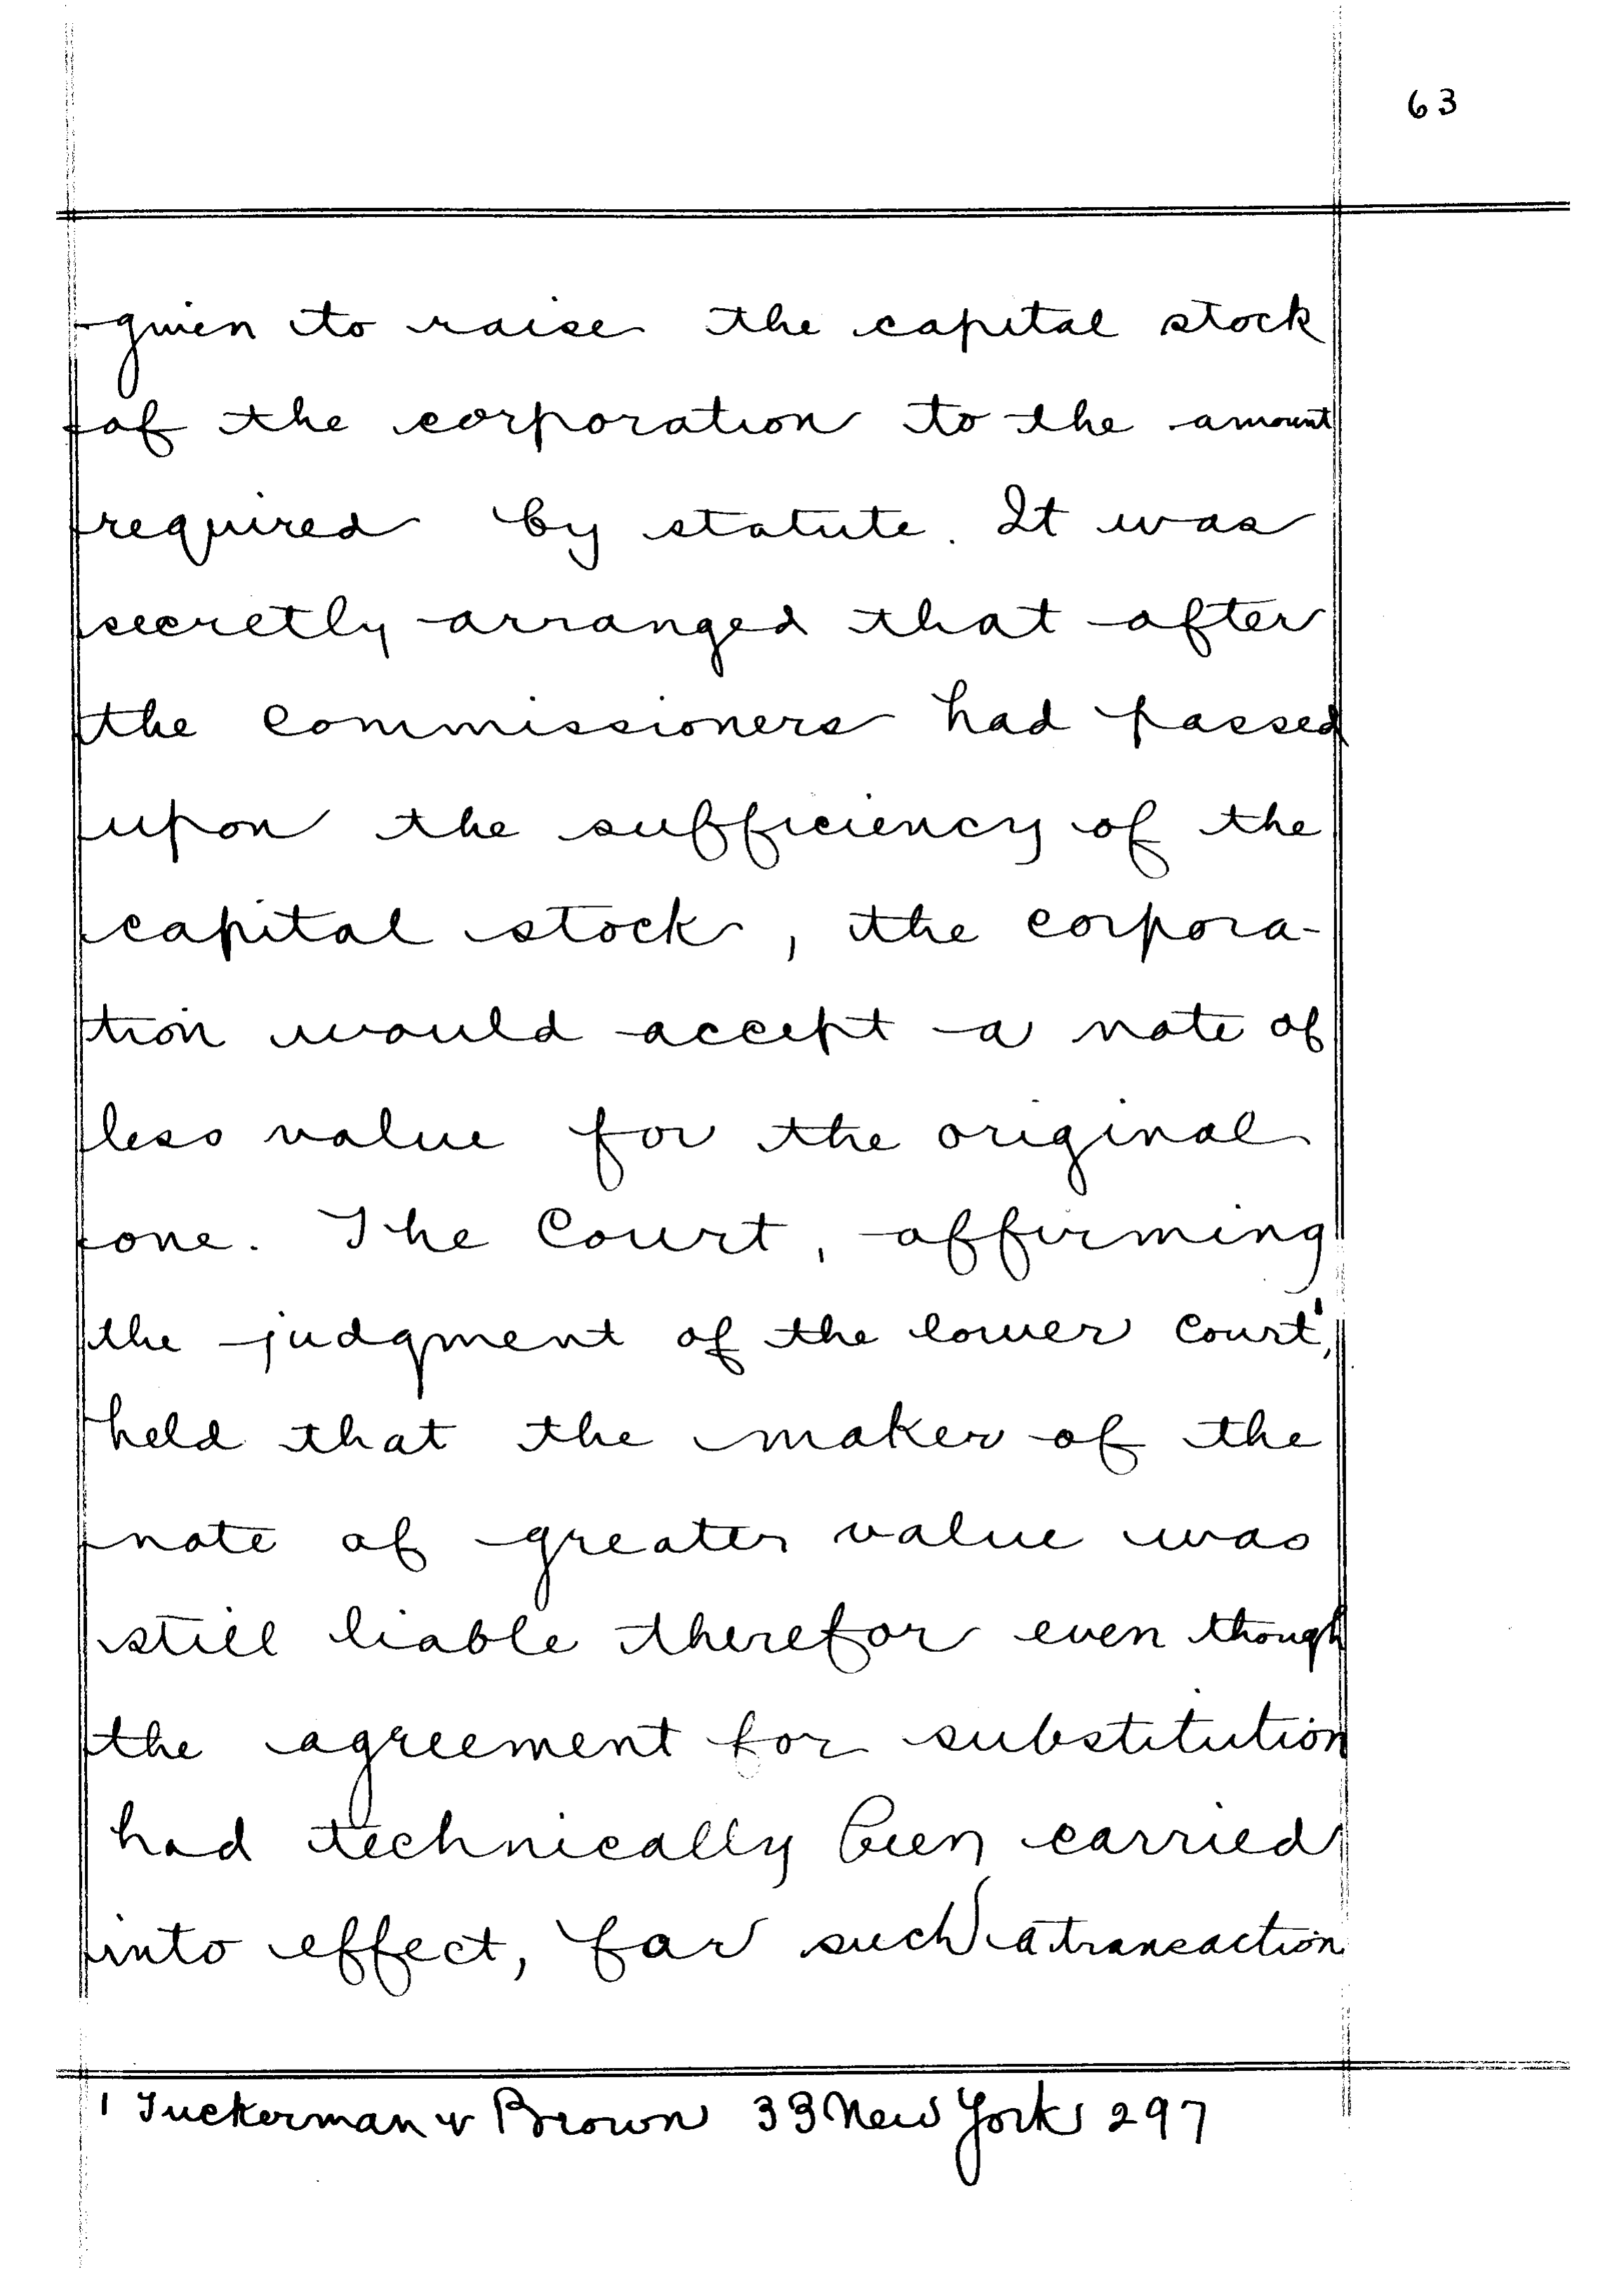 63
given to raise the capital stock
of the corporation to the amount
required by statute. It was
secretly arranged that after
the commissioners had passed
upon the sufficiency of the
capital stock, the corpora-
tion would accept a note of
less value for the original
one. The Court, affirming
the judgment of the lower court¹,
held that the maker of the
note of greater value was
still liable therefor even though
the agreement for substitution
had technically been carried
into effect, for such a transaction
1 Tuckerman v Brown 33 New York 297